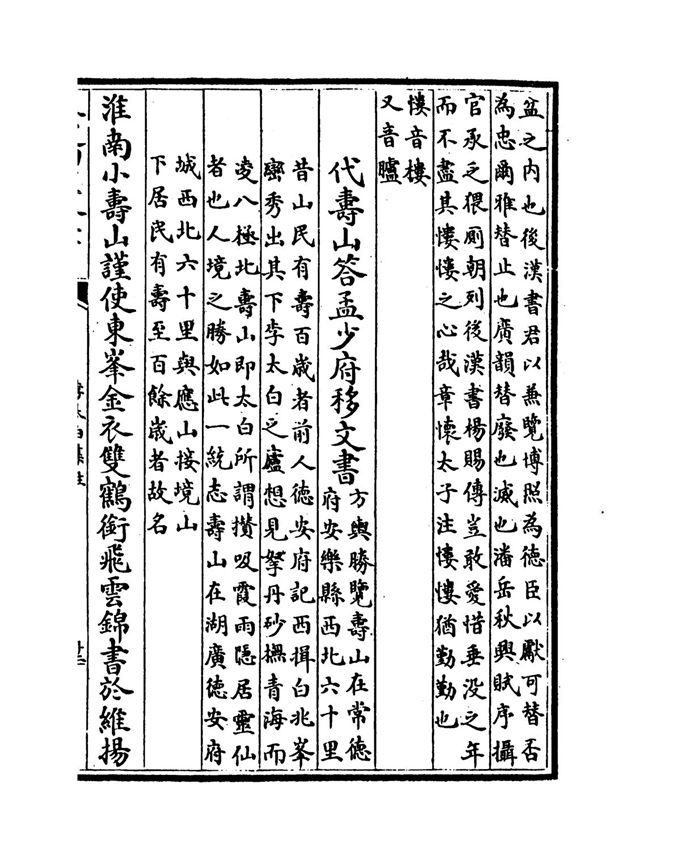 盆之内也後漢書君以兼覽博照為徳臣以獻可替否
為忠爾雅替止也廣韻替廢也滅也潘岳秋興賦序攝
官承乏猥厠朝列後漢書楊賜傳豈敢愛惜垂没之年
而不盡其慺慺之心哉章懷太子注慺慺猶勤勤也
慺音樓
又音臚
代壽山答孟少府移文書
方輿勝覽壽山在常徳
府安樂縣西北六十里
昔山民有壽百歲者前人徳安府記西揖白兆峯
巒秀出其下李太白之廬想見拏丹砂撫青海而
凌八極北壽山即太白所謂攢吸霞雨隱居靈仙
者也人境之勝如此一統志壽山在湖廣徳安府
城西北六十里與應山接境山
下居民有壽至百餘歲者故名
淮南小壽山謹使東峯金衣雙鶴銜飛雲錦書於維揚